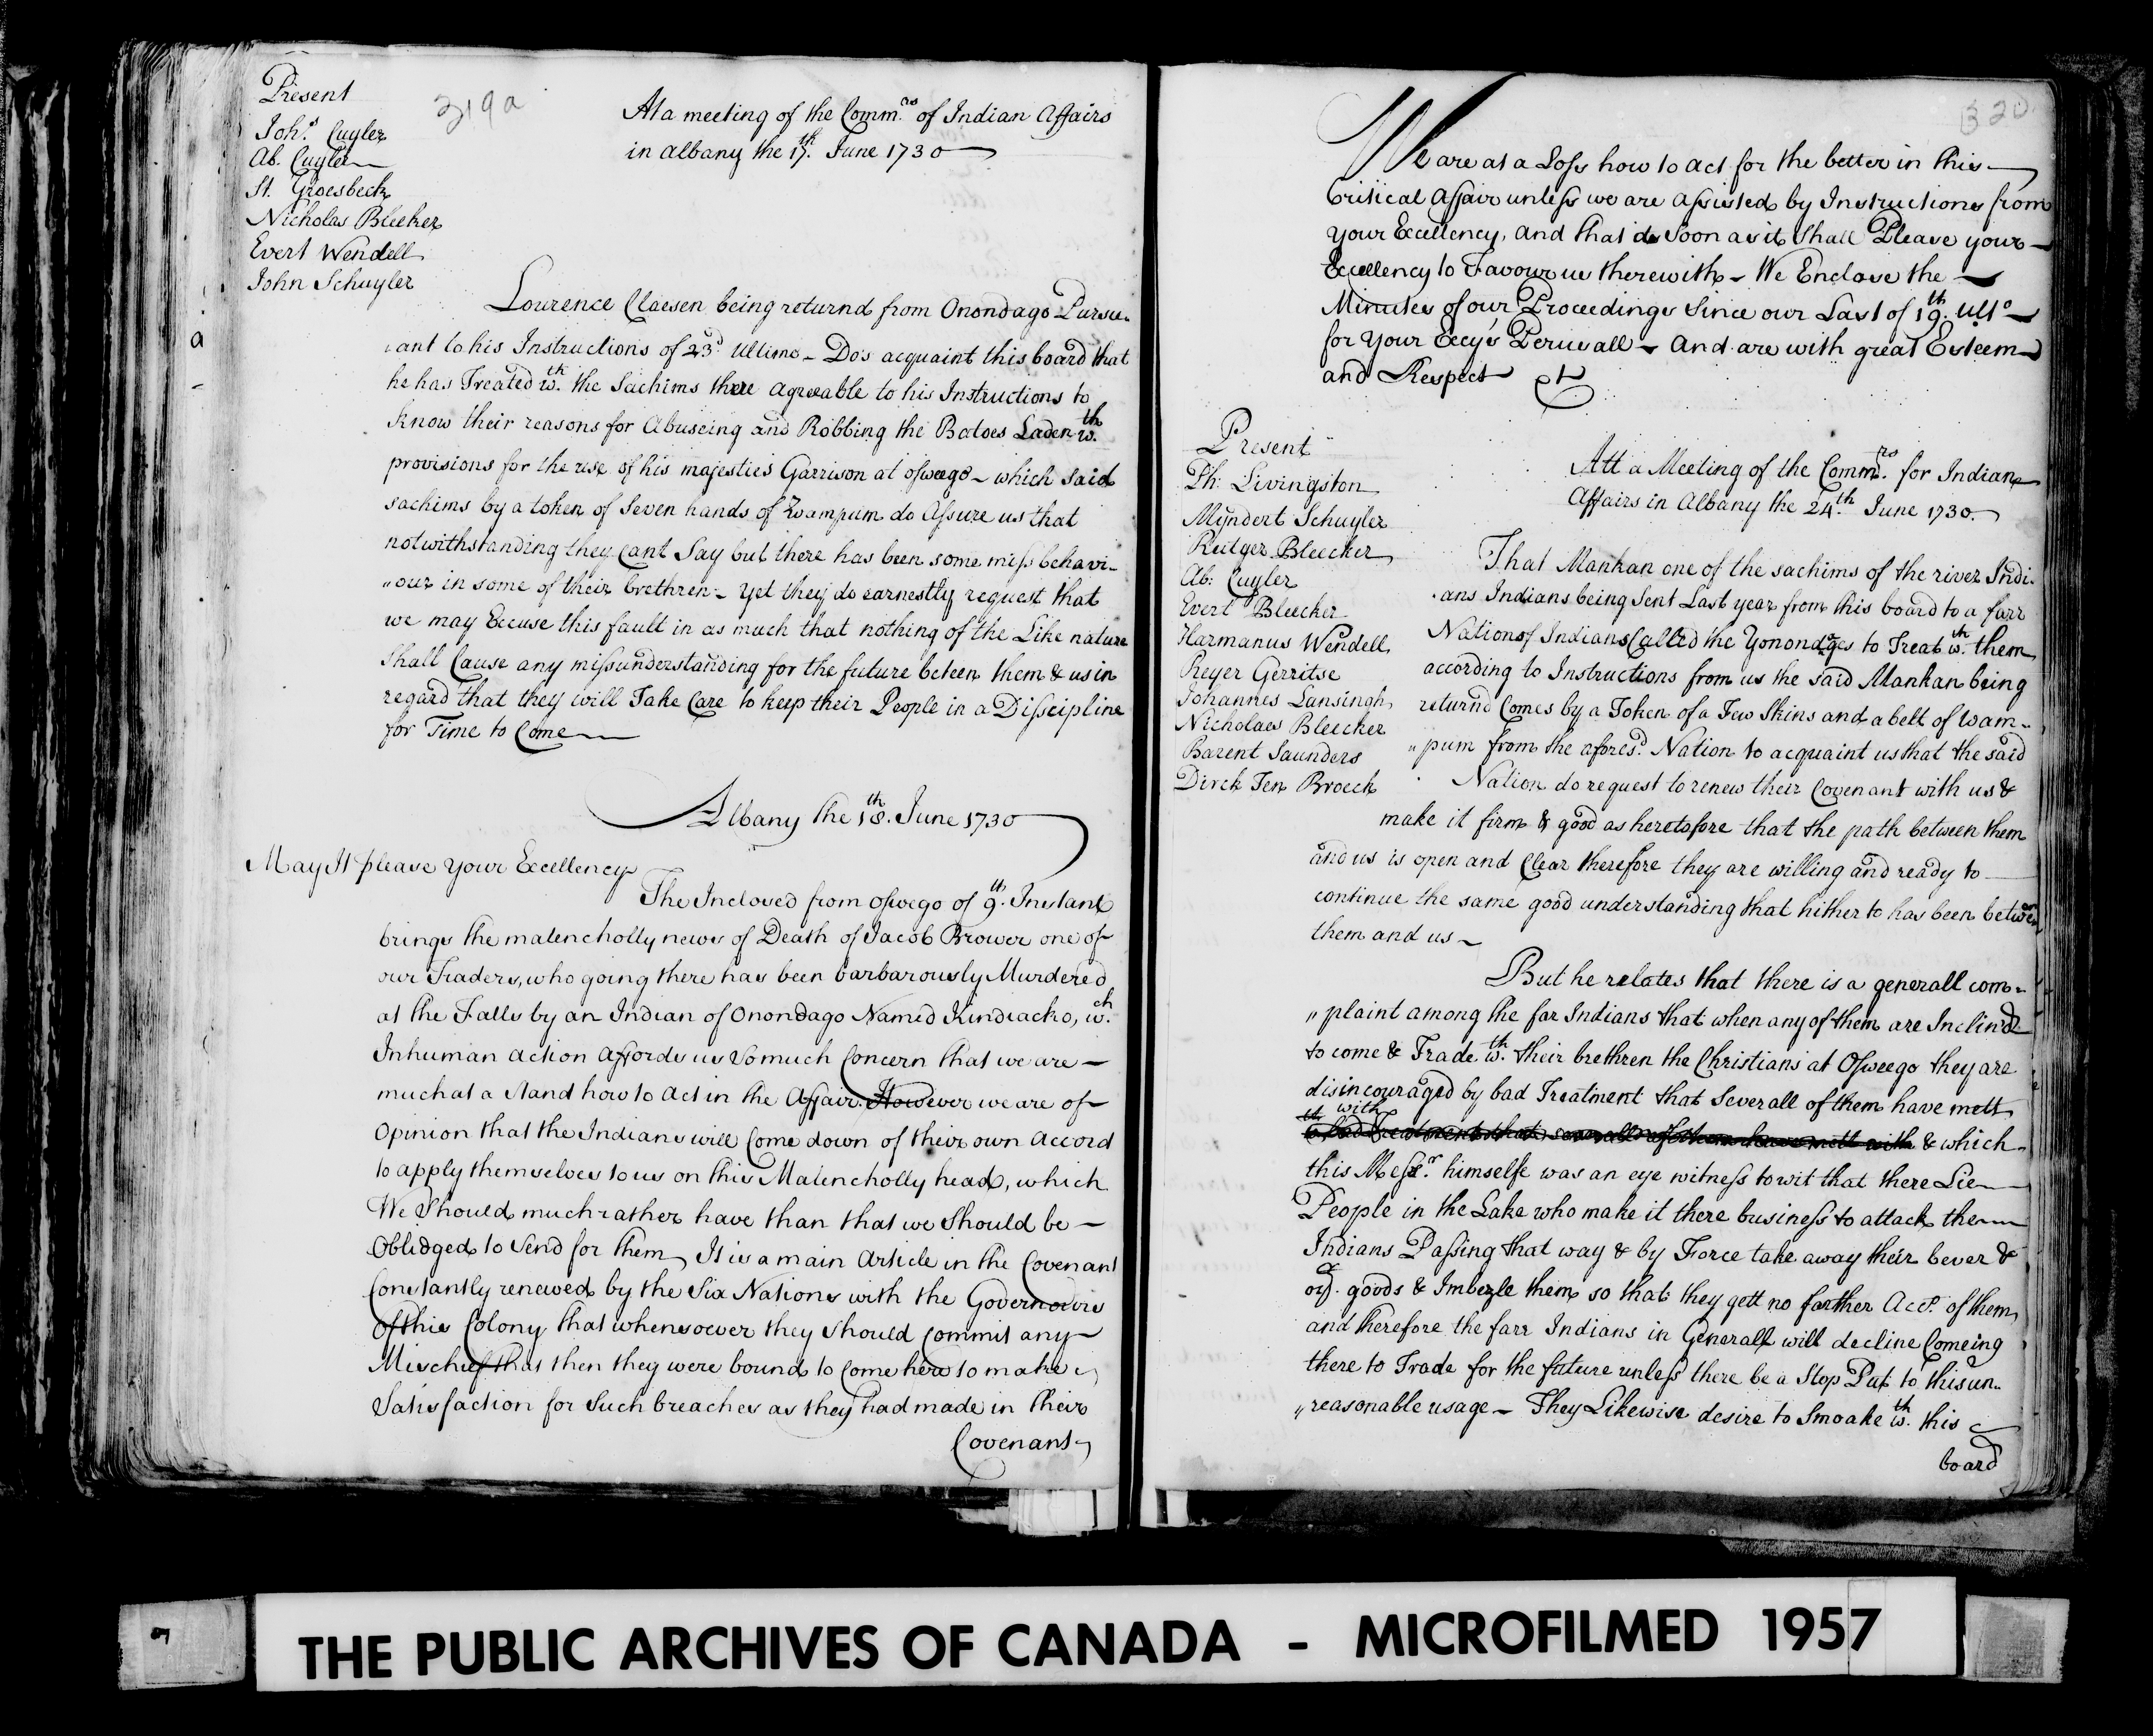 319a
Present
Joh.s Cuyler
Ab. Cuyler
St. Groesbeck
Nicholas Bleeker
Evert Wendell
John Schuyler
At a meeting of the Comm.rs of Indian Affairs
in albany the 17.th June 1730
Lourence Claesen being returnd from Onondago Pursu-
ant to his Instructions of 23d Ultimo - Do's acquaint this board that
he has Treated w.th the Sachims there agreeable to his Instructions to
know their reasons for Abuseing and Robbing the Batoes Laden w.th
provisions for the use of his majesties Garrison at osweego - which said
sachims by a token of Seven hands of Wampum do Assure us that
notwithstanding they Cant Say but there has been some miss behavi-
"our in some of their brethren - yet they do earnestly request that
we may Excuse this fault in as much that nothing of the Like nature
Shall Cause any missunderstanding for the future beteen them & us in
regard that they will Take Care to keep their People in a Disscipline
for Time to Come
Albany the 18.th June 1730
May It please Your Excellency
The Inclosed from osswego of 9.th Instant
brings the malencholly news of Death of Jacob Brower one of
our Traders, who going there has been barbarously Murdered
at the Falls by an Indian of Onondago Named Kindiacko, w.ch
Inhuman action affords us So much Concern that we are -
much at a stand how to act in the Affair. However we are of
Opinion that the Indians will Come down of their own accord
to apply themselves to us on this Malencholly head, which
We Should much rather have than that we Should be -
Oblidged to Send for them, It is a main Article in the Covenant
Constantly renewed by the Six Nations with the Governours
Of this Colony that whensoever they Should Commit any
Mischief that then they were bound to Come here to make
Satisfaction for Such breaches as they had made in their
Covenant
320
We are at a Loss how to act for the better in this
Critical Affair unless we are assisted by Instructions from
your Excellency, and that as Soon as it Shall Please your
Excellency to Favour us therewith - We Enclose the
Minutes of our Proceedings Since our Last of 19.th Ult.o
for Your Excy's Perusall - And are with great Esteem
and Respect
Present
Ph: Livingston
Myndert Schuyler
Rutger Bleecker
Ab: Cuyler
Evert Bleecker
Harmanus Wendell
Reyer Gerritse
Johannes Lansingh
Nicholaes Bleecker
Barent Saunders
Dirck Ten Broeck
Att a Meeting of the Comm.rs for Indian
Affairs in Albany the 24.th June 1730.
That Mankan one of the sachims of the river Indi-
ans Indians being Sent Last year from this board to a farr
Nation of Indians Called the Yonondages to Treat w.th them
according to Instructions from us the said Mankan being
returnd Comes by a Token of a Few Skins and a belt of wam-
"pum from the afores.d Nation to acquaint us that the said
Nation do request to renew their Covenant with us &
make it firm & good as heretofore that the path between them
and us is open and Clear therefore they are willing and ready to
continue the same good understanding that hither to has been between
them and us -
But he relates that there is a generall com-
"plaint among the far Indians that when any of them are Inclind
to come & Trade w.th their brethren the Christians at Osweego they are
disincouraged by bad Treatment that Severall of them have mett
with
to bad Treatment that severall of them have mett with & which
this Mess.r himselfe was an eye witness to wit that there Lie
People in the Lake who make it there business to attack the
Indians Passing that way & by Force take away their bever &
oy.r goods & Imbezle them so that they gett no farther Acc.t of them
and therefore the farr Indians in Generall will decline Comeing
there to Trade for the future unless there be a Stop Put to this un-
"reasonable usage - They Likewise desire to Smoake w.th this
board
THE PUBLIC ARCHIVES OF CANADA - MICROFILMED 1957